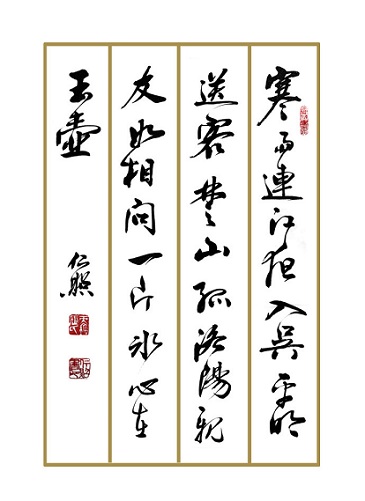 寒雨連江夜入吳平明
送客楚山孤洛陽親
友如相問一片冰心在
玉壺
仁